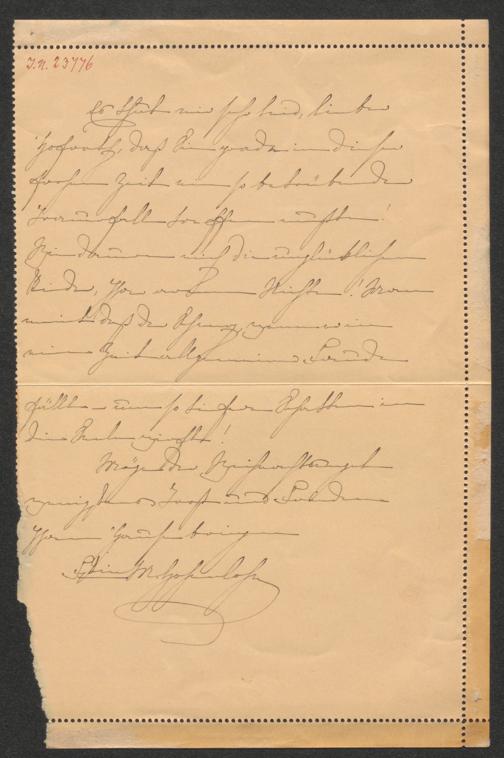 I.N. 23776
Es thut mir sehr leid, lieber
Hofrath, daß Sie gerade in dieser
frohen Zeit ein so betrübender
Trauerfall treffen mußte!
Wie dauern mich die unglücklichen
Kinder, Ihre Nichte! Man
meint daß der Schmerz, wenn er in
eine Zeit allgemeiner Freude
fällt – um so tiefere Schatten in
die Seele wirft!
Möge der Weihnachtsengel
wenigstens Trost und Frieden
Ihrem Hause bringen
Fstin M. Hohenlohe